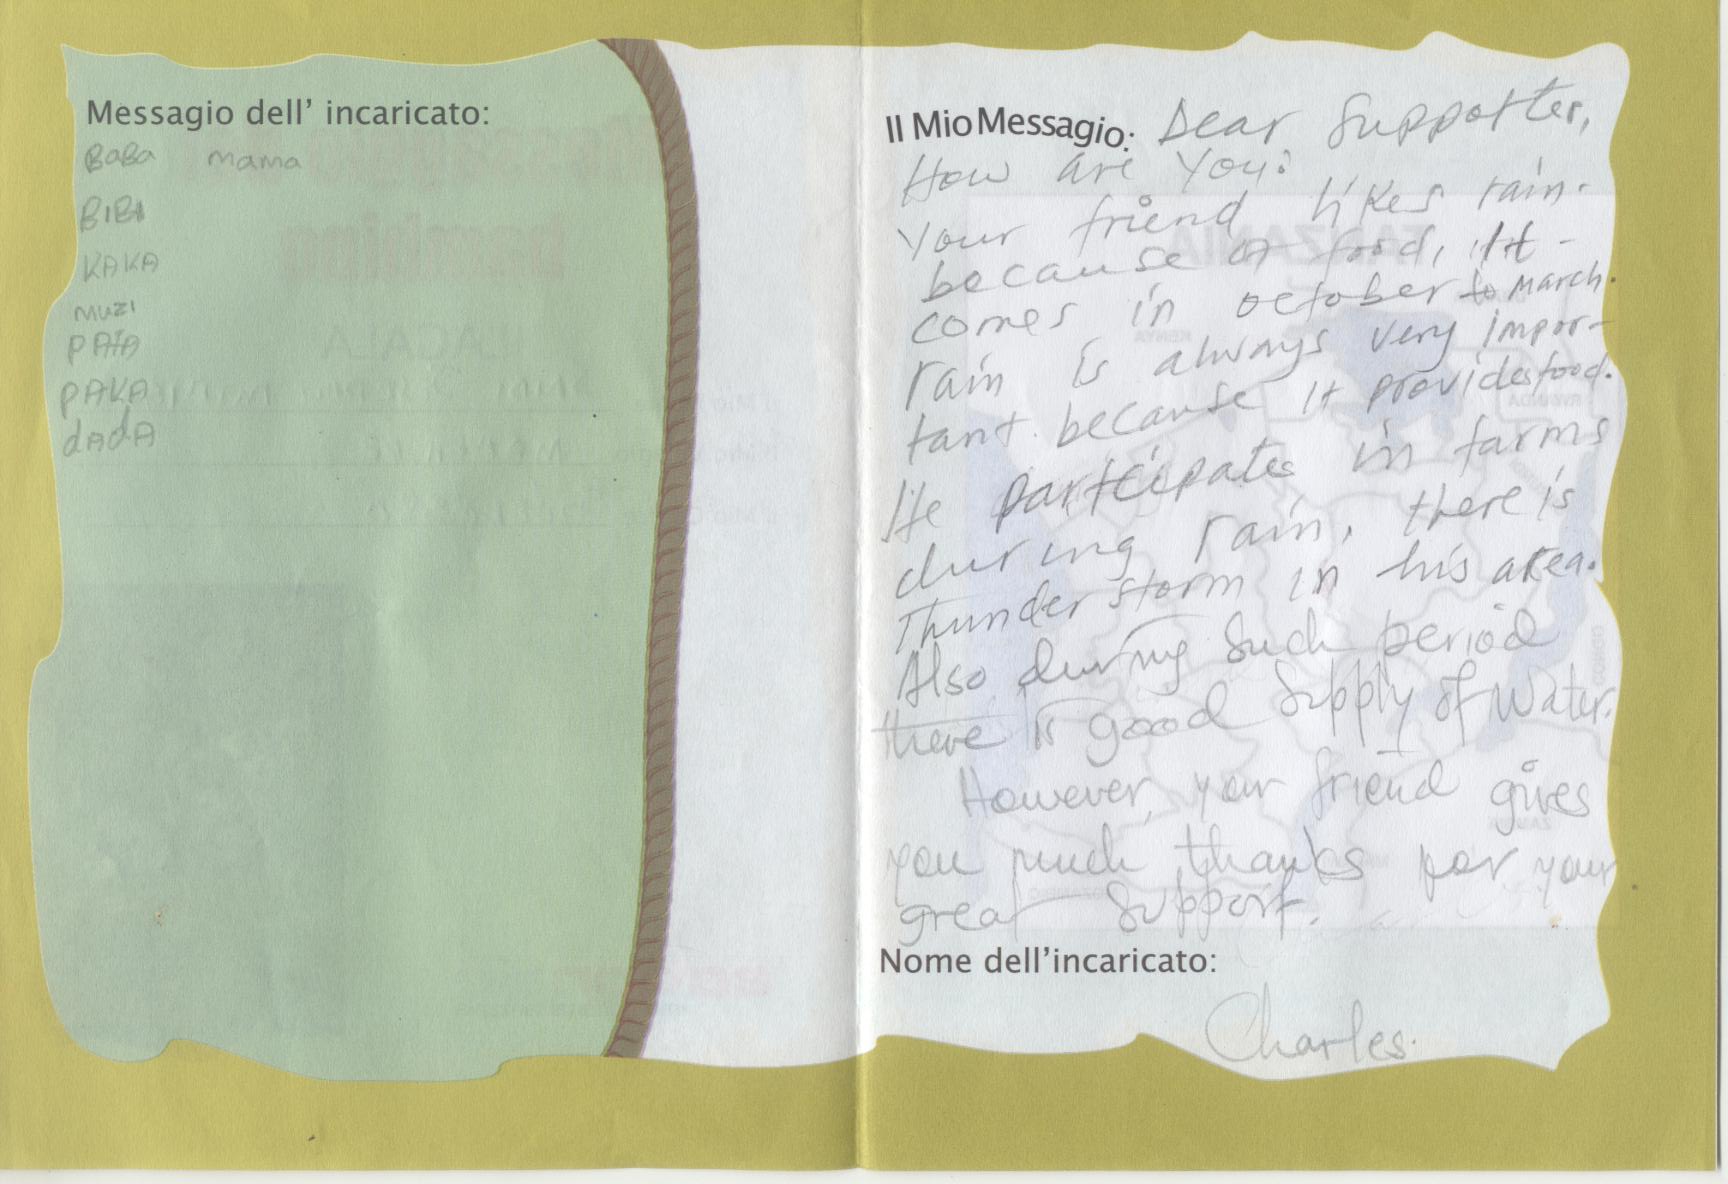 Messagio dell' incaricato:
BaBa mama
BIBI
KAKA
muzi
PATA
PAKA
dAdA
Il Mio Messagio: Dear Supporter,
How are You?
Your friend likes rain-
because of food, It-
comes in october to march.
rain is always very impor-
tant. because it provides food.
He participates in farms
during rain, there is
Thunder storm in his area.
Also during Such period
there is good Supply of Water.
However, your friend gives
you much thanks for your
great Support.
Nome dell'incaricato:
Charles.